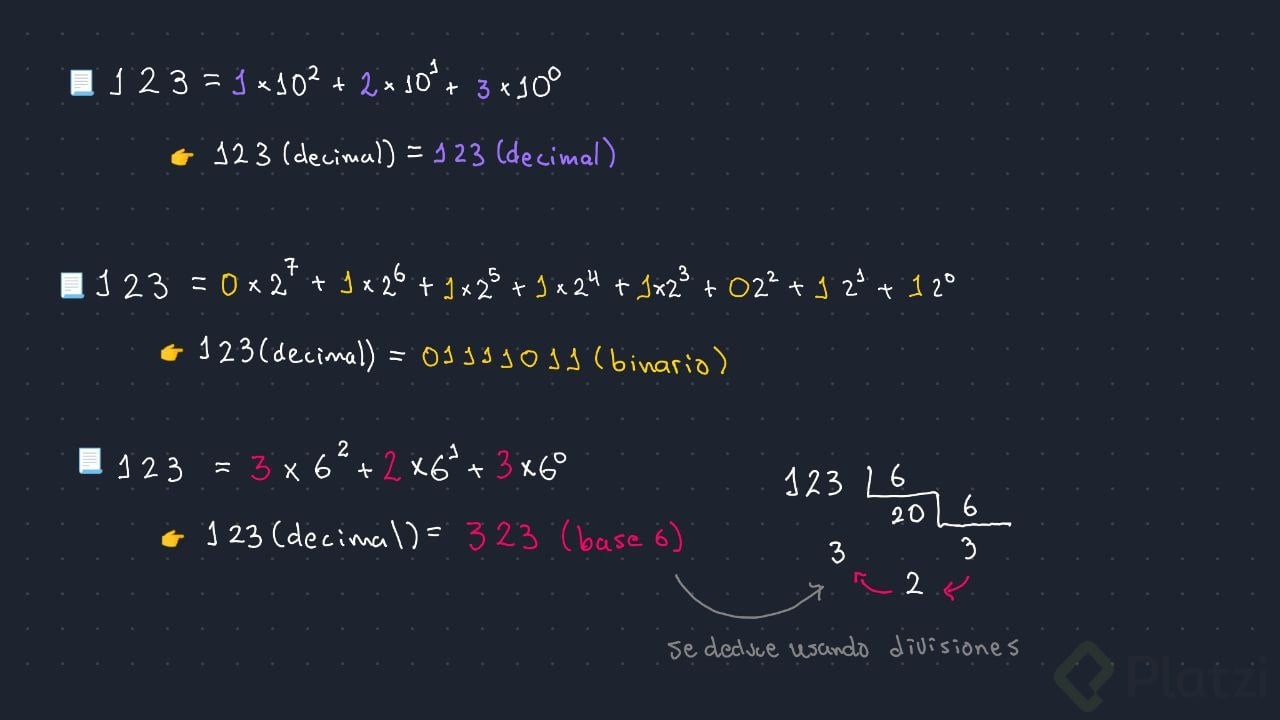 123 = 1 × 10² + 2 × 10¹ + 3 × 10⁰
123 (decimal) = 123 (decimal)
123 = 0 × 2⁷ + 1 × 2⁶ + 1 × 2⁵ + 1 × 2⁴ + 1 × 2³ + 0 2² + 1 2¹ + 1 2⁰
123 (decimal) = 01111011 (binario)
123 = 3 × 6² + 2 × 6¹ + 3 × 6⁰
123 6
20 6
123 (decimal) = 323 (base 6)
3 3
2
se deduce usando divisiones
Platzi